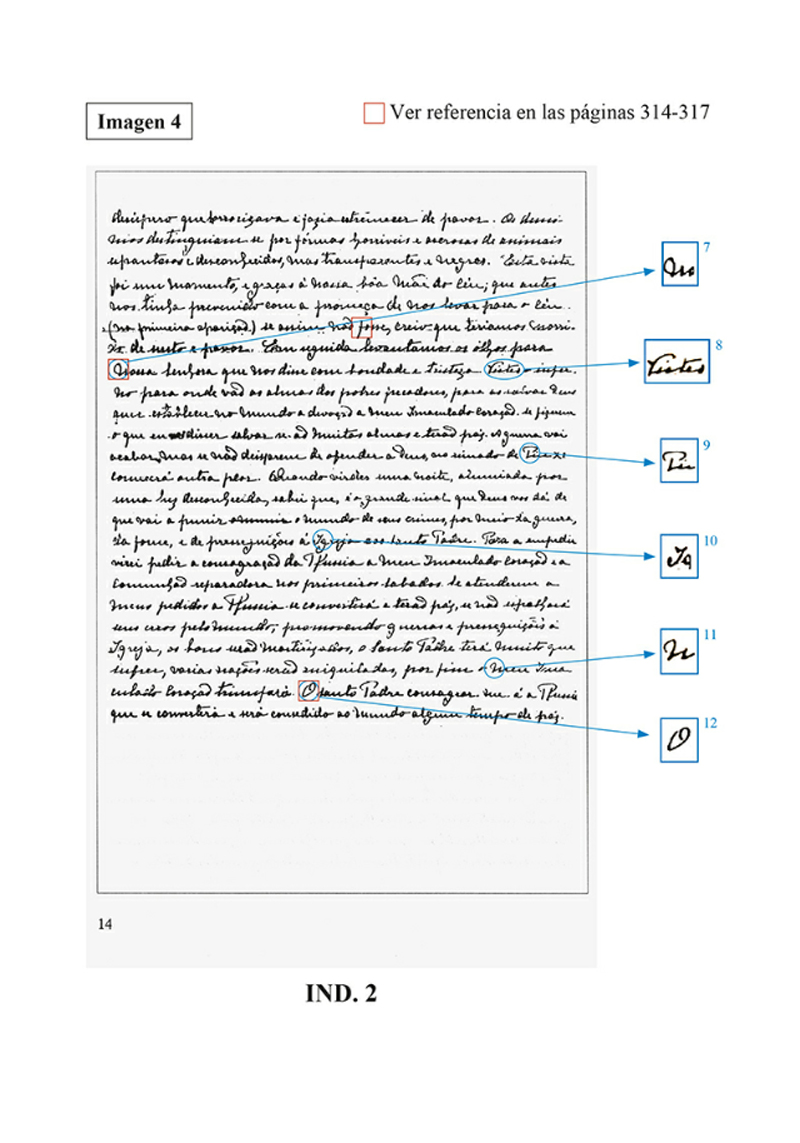 Imagen 4
Ver referencia en las páginas 314-317
desispero que horrorizava e fazia estremecer de pavor. Os demo-
nios destinguiam-se por fórmas horriveis e ascrosas de animais
espantosos e desconhecidos, mas transparentes e negros. Esta vista
foi um momento, e graças à nossa bôa Mãe do Céu; que antes
nos tinha prevenido com a promeça de nos levar para o Céu.
(na primeira aparição) se assim não fosse, creio que teriamos morri-
do de susto e pavor. Em seguida levantámos os olhos para
Nossa Senhora que nos disse com bondade e tristeza Vistes o infer-
no para onde vão as almas dos pobres pecadores, para as salvar Deus
quer establecer no mundo a devoção a Meu Imaculado Coração. se fizerem
o que eu disser salvar-se-ão muitas almas e terão paz. A guerra vai
acabar, mas se não deixarem de ofender a Deus, no reinado de Pio XI
começará outra peor. Quando virdes uma noite, alumiada por
uma luz desconhecida, sabei que, é o grande sinal que Deus vos dá de
que vai a punir o mundo de seus crimes, por meio da guerra,
da fome, e de perseguições à Igreja ao Santo Padre. Para a empedir
virei pedir a consagração da Russia a Meu Imaculado Coração e a
Comunhão reparadora nos primeiros sabados. Se atenderem a
meus pedidos a Russia se converterá e terão paz, se não espalhará
seus erros pelo mundo, promovendo guerras e perseguições à
Igreja, os bons serão martirizados, o Santo Padre terá muito que
sufrer, varias nações serão aniquiladas, por fim o Meu Ima-
culado Coração triumfará. O Santo Padre consagrar-me-á a Russia
que se converterá e será consedido ao mundo algum tempo de paz.
7
No
8
Vistes
9
Pio
10
Ig
11
12
O
14
IND. 2